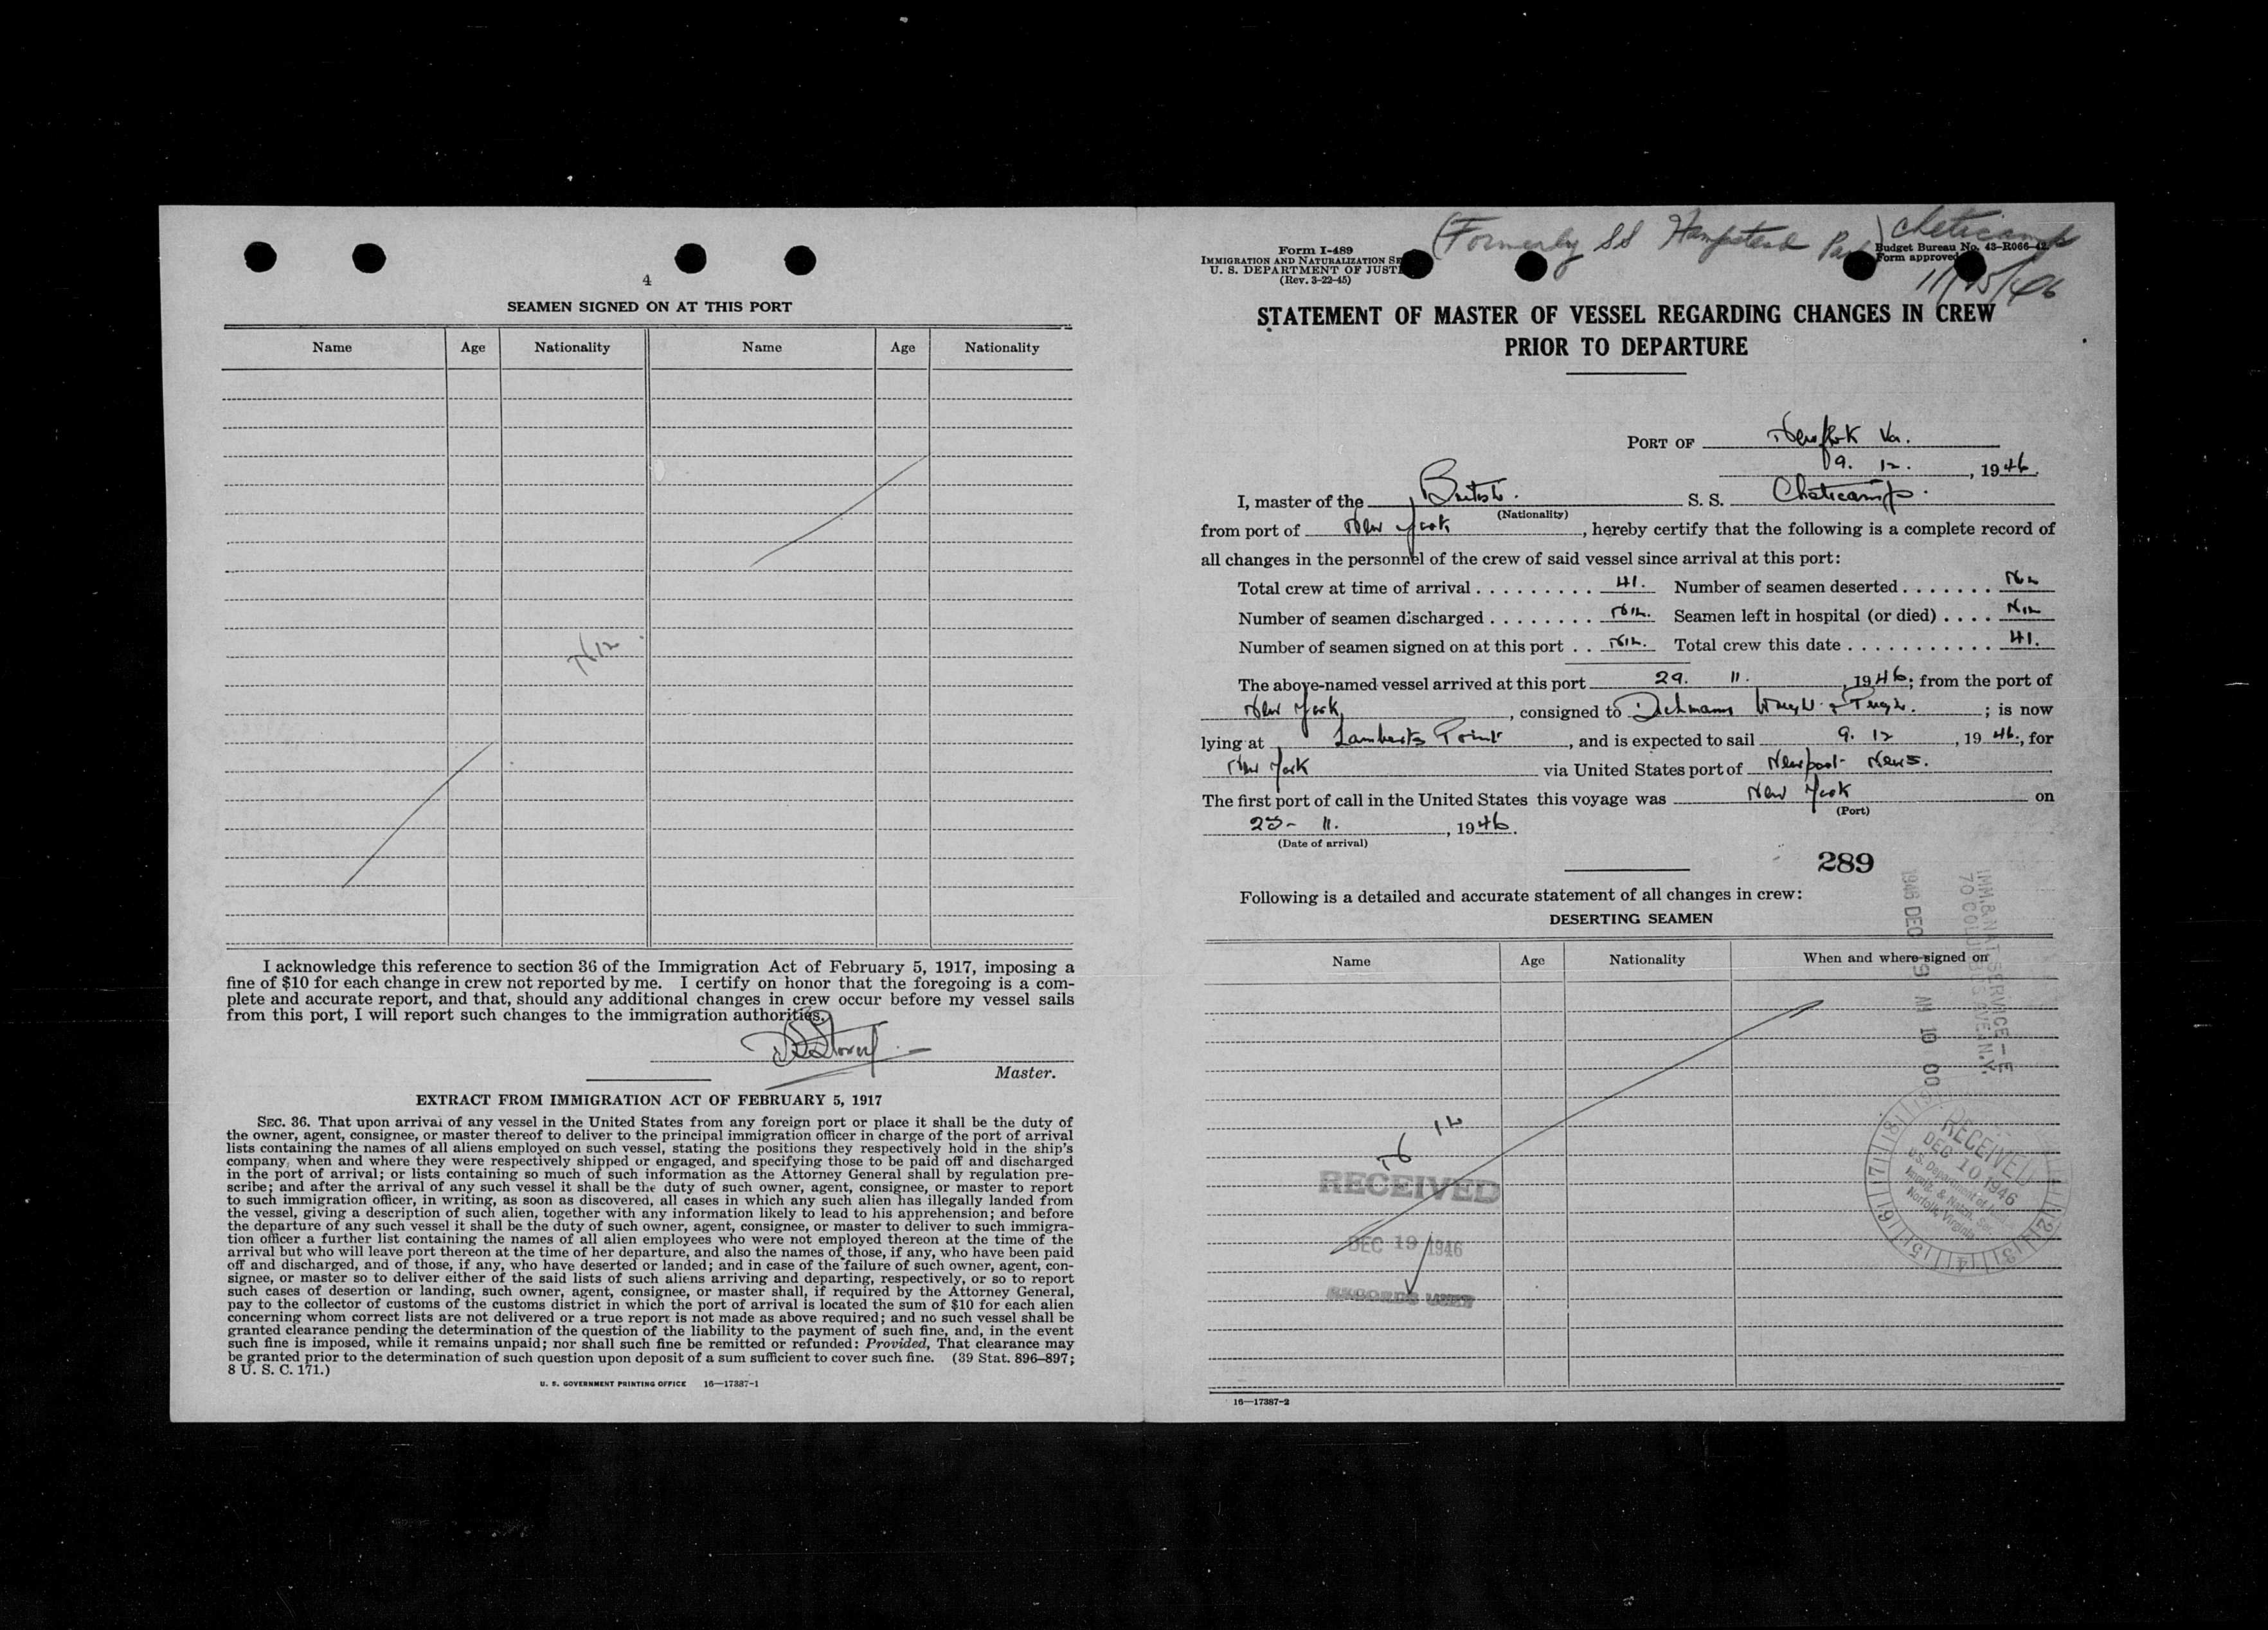 4
SEAMEN SIGNED ON AT THIS PORT
Name Age Nationality Name Age Nationality
NIL
I acknowledge this reference to section 36 of the Immigration Act of February 5, 1917, imposing a
fine of $10 for each change in crew not reported by me. I certify on honor that the foregoing is a com-
plete and accurate report, and that, should any additional changes in crew occur before my vessel sails
from this port, I will report such changes to the immigration authorities.
Master.
EXTRACT FROM IMMIGRATION ACT OF FEBRUARY 5, 1917
SEC. 36. That upon arrival of any vessel in the United States from any foreign port or place it shall be the duty of
the owner, agent, consignee, or master thereof to deliver to the principal immigration officer in charge of the port of arrival
lists containing the names of all aliens employed on such vessel, stating the positions they respectively hold in the ship's
company, when and where they were respectively shipped or engaged, and specifying those to be paid off and discharged
in the port of arrival; or lists containing so much of such information as the Attorney General shall by regulation pre-
scribe; and after the arrival of any such vessel it shall be the duty of such owner, agent, consignee, or master to report
to such immigration officer, in writing, as soon as discovered, all cases in which any such alien has illegally landed from
the vessel, giving a description of such alien, together with any information likely to lead to his apprehension; and before
the departure of any such vessel it shall be the duty of such owner, agent, consignee, or master to deliver to such immigra-
tion officer a further list containing the names of all alien employees who were not employed thereon at the time of the
arrival but who will leave port thereon at the time of her departure, and also the names of those, if any, who have been paid
off and discharged, and of those, if any, who have deserted or landed; and in case of the failure of such owner, agent, con-
signee, or master so to deliver either of the said lists of such aliens arriving and departing, respectively, or so to report
such cases of desertion or landing, such owner, agent, consignee, or master shall, if required by the Attorney General,
pay to the collector of customs of the customs district in which the port of arrival is located the sum of $10 for each alien
concerning whom correct lists are not delivered or a true report is not made as above required; and no such vessel shall be
granted clearance pending the determination of the question of the liability to the payment of such fine, and, in the event
such fine is imposed, while it remains unpaid; nor shall such fine be remitted or refunded: Provided, That clearance may
be granted prior to the determination of such question upon deposit of a sum sufficient to cover such fine. (39 Stat. 896–897;
8 U. S. C. 171.)
U. S. GOVERNMENT PRINTING OFFICE 16—17387-1
(Formerly SS Hampstead Park) Cheticamp
11/25/46
Form I-489
IMMIGRATION AND NATURALIZATION SE
U. S. DEPARTMENT OF JUST
(Rev. 3-22-45)
Budget Bureau No. 43-R066-42.
Form approved
STATEMENT OF MASTER OF VESSEL REGARDING CHANGES IN CREW
PRIOR TO DEPARTURE
PORT OF Norfolk Va.
9. 12. , 1946.
I, master of the British. S. S. Cheticamp.
(Nationality)
from port of New York , hereby certify that the following is a complete record of
all changes in the personnel of the crew of said vessel since arrival at this port:
Total crew at time of arrival . . . . . . . . . 41. Number of seamen deserted . . . . . . . NIL
Number of seamen discharged . . . . . . . . NIL. Seamen left in hospital (or died) . . . . NIL
Number of seamen signed on at this port . . NIL. Total crew this date . . . . . . . . . . . . 41.
The above-named vessel arrived at this port 29. 11. , 1946; from the port of
New York, , consigned to Dichmann Wright & Pugh. ; is now
lying at Lamberts Point , and is expected to sail 9. 12 , 1946., for
New York via United States port of Newport News.
The first port of call in the United States this voyage was New York on
(Port)
25- 11. , 1946.
(Date of arrival)
289
Following is a detailed and accurate statement of all changes in crew:
DESERTING SEAMEN
Name Age Nationality When and where signed on
NIL
RECEIVED
DEC 19 1946
IMM. & NAT. SERVICE
70 COLUMBUS AVE. N.Y.
1946 DEC 9 AM 10 00
RECEIVED
DEC 10 1946
U.S. Department of Justice
Immig. & Natzn. Ser.
Norfolk, Virginia
16—17387-2